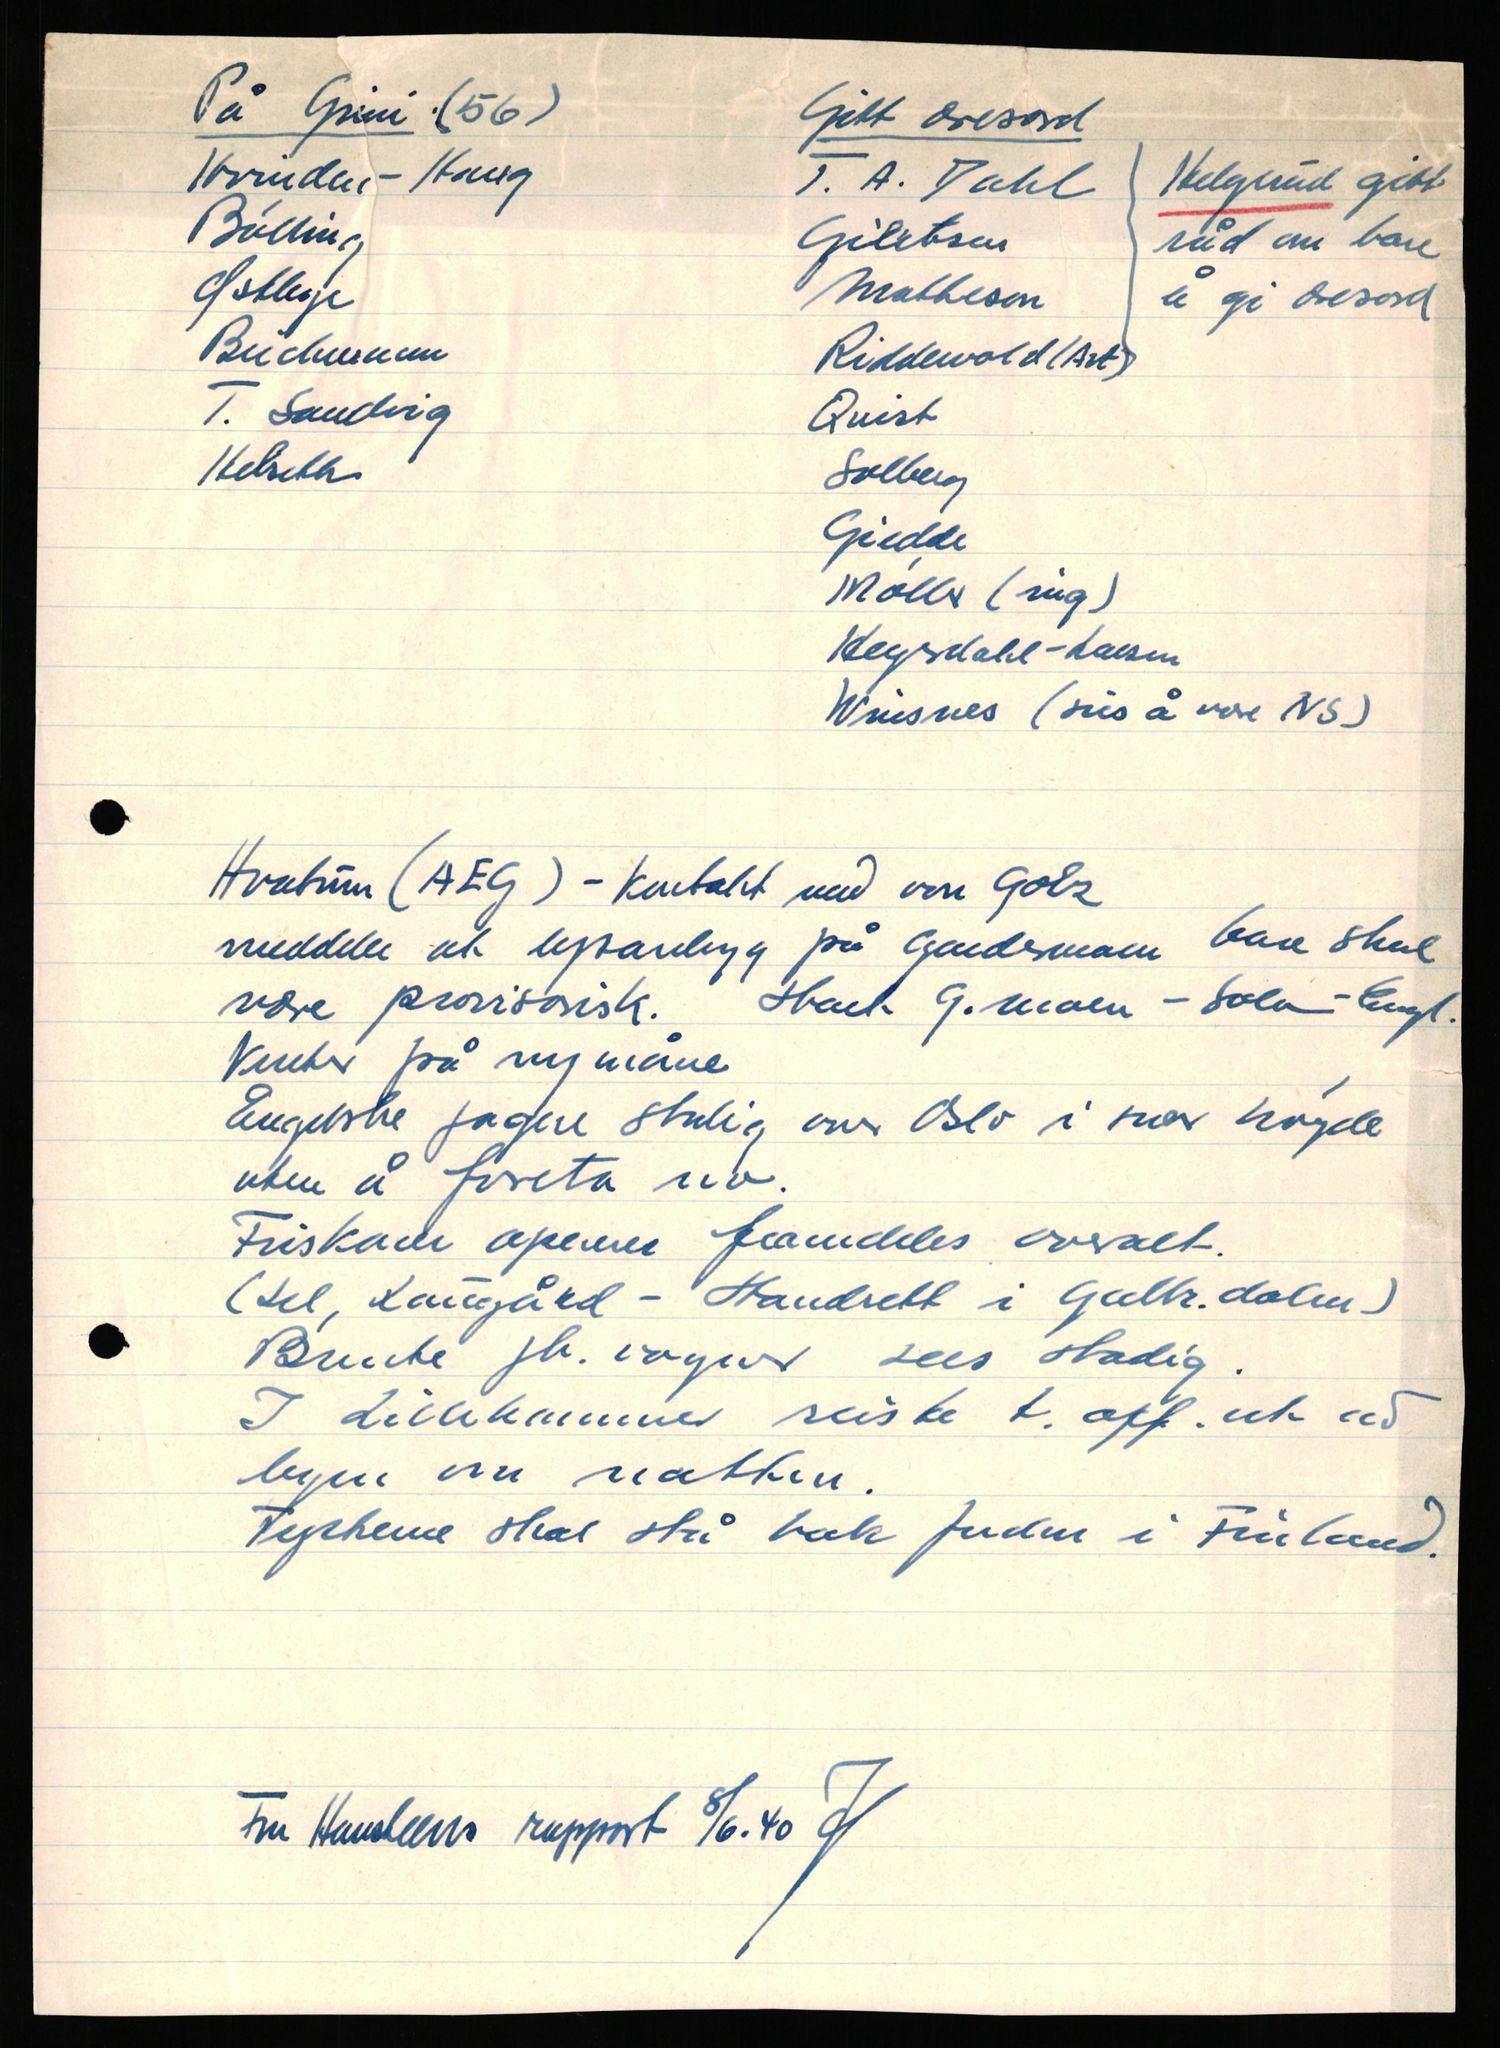 På Grini (56)
Hvinden-Haug
Bölling
Østbye
Büchmann
T. Sandvig
Helseth
Gitt æresord
T. A. Dahl
Giletsen
Mathesen
Riddervold (Art)
Quist
Solberg
Giedde
Möller (ing)
Heyerdahl-Larsen
Winsnes (sies å være NS)
Helgerud gitt
råd om bare
å gi æresord
Hvatūm (AEG) - Kontakt med von Golz
meddeler at lysanlegg på Gardermoen bare skal
være provisorisk. Start G.moen - Sola - Engl.
Venter på nymåne
Engelske jagere stadig over Oslo i stor höyde
uten å foreta no.
Friskarer opererer fremdeles overalt.
(Lel, Langård - Standrett i Gudbr.dalen)
Brente jb. vogner sees stadig.
I Lillehammer reiste t. off. ut av
byen om natten.
Tyskerne skal stå bak freden i Finland.
Fru Hansteens rapport 8/6.40